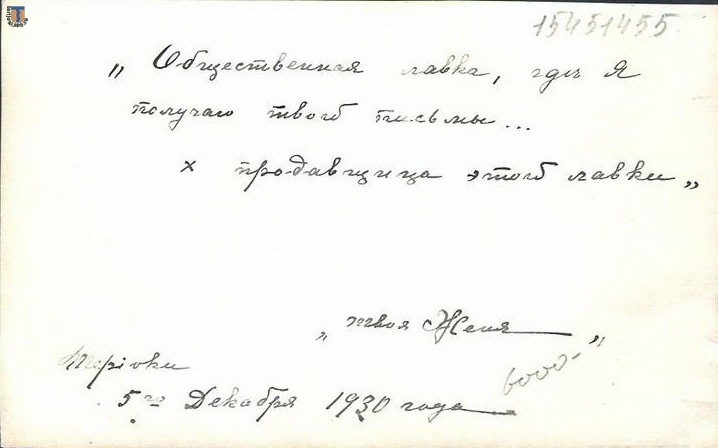 15451455
„ Общественная лавка, где я
получаю твоѣ письмы...
х продавщица этой лавки „
„ твоя Женя „
Терiоки
6000-
5го Декабря 1930 года